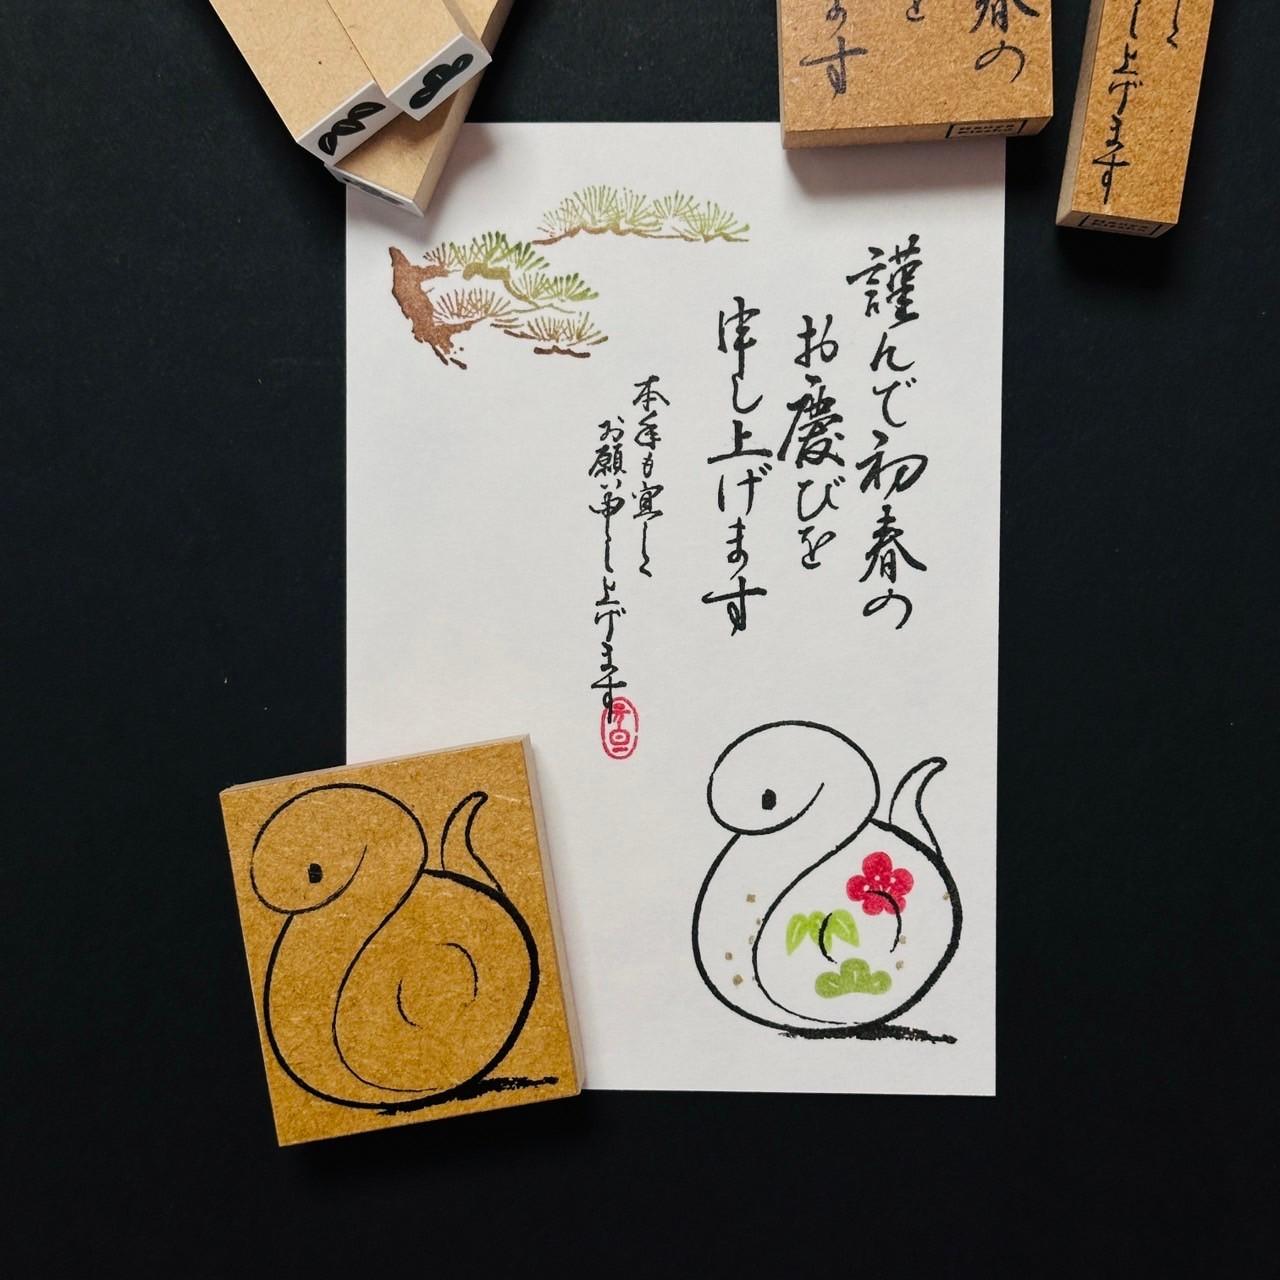 謹んで初春の
お慶びを
申し上げます
本年も宜しく
お願い申し上げます
元旦
春の
を
ます
しく
し上げます